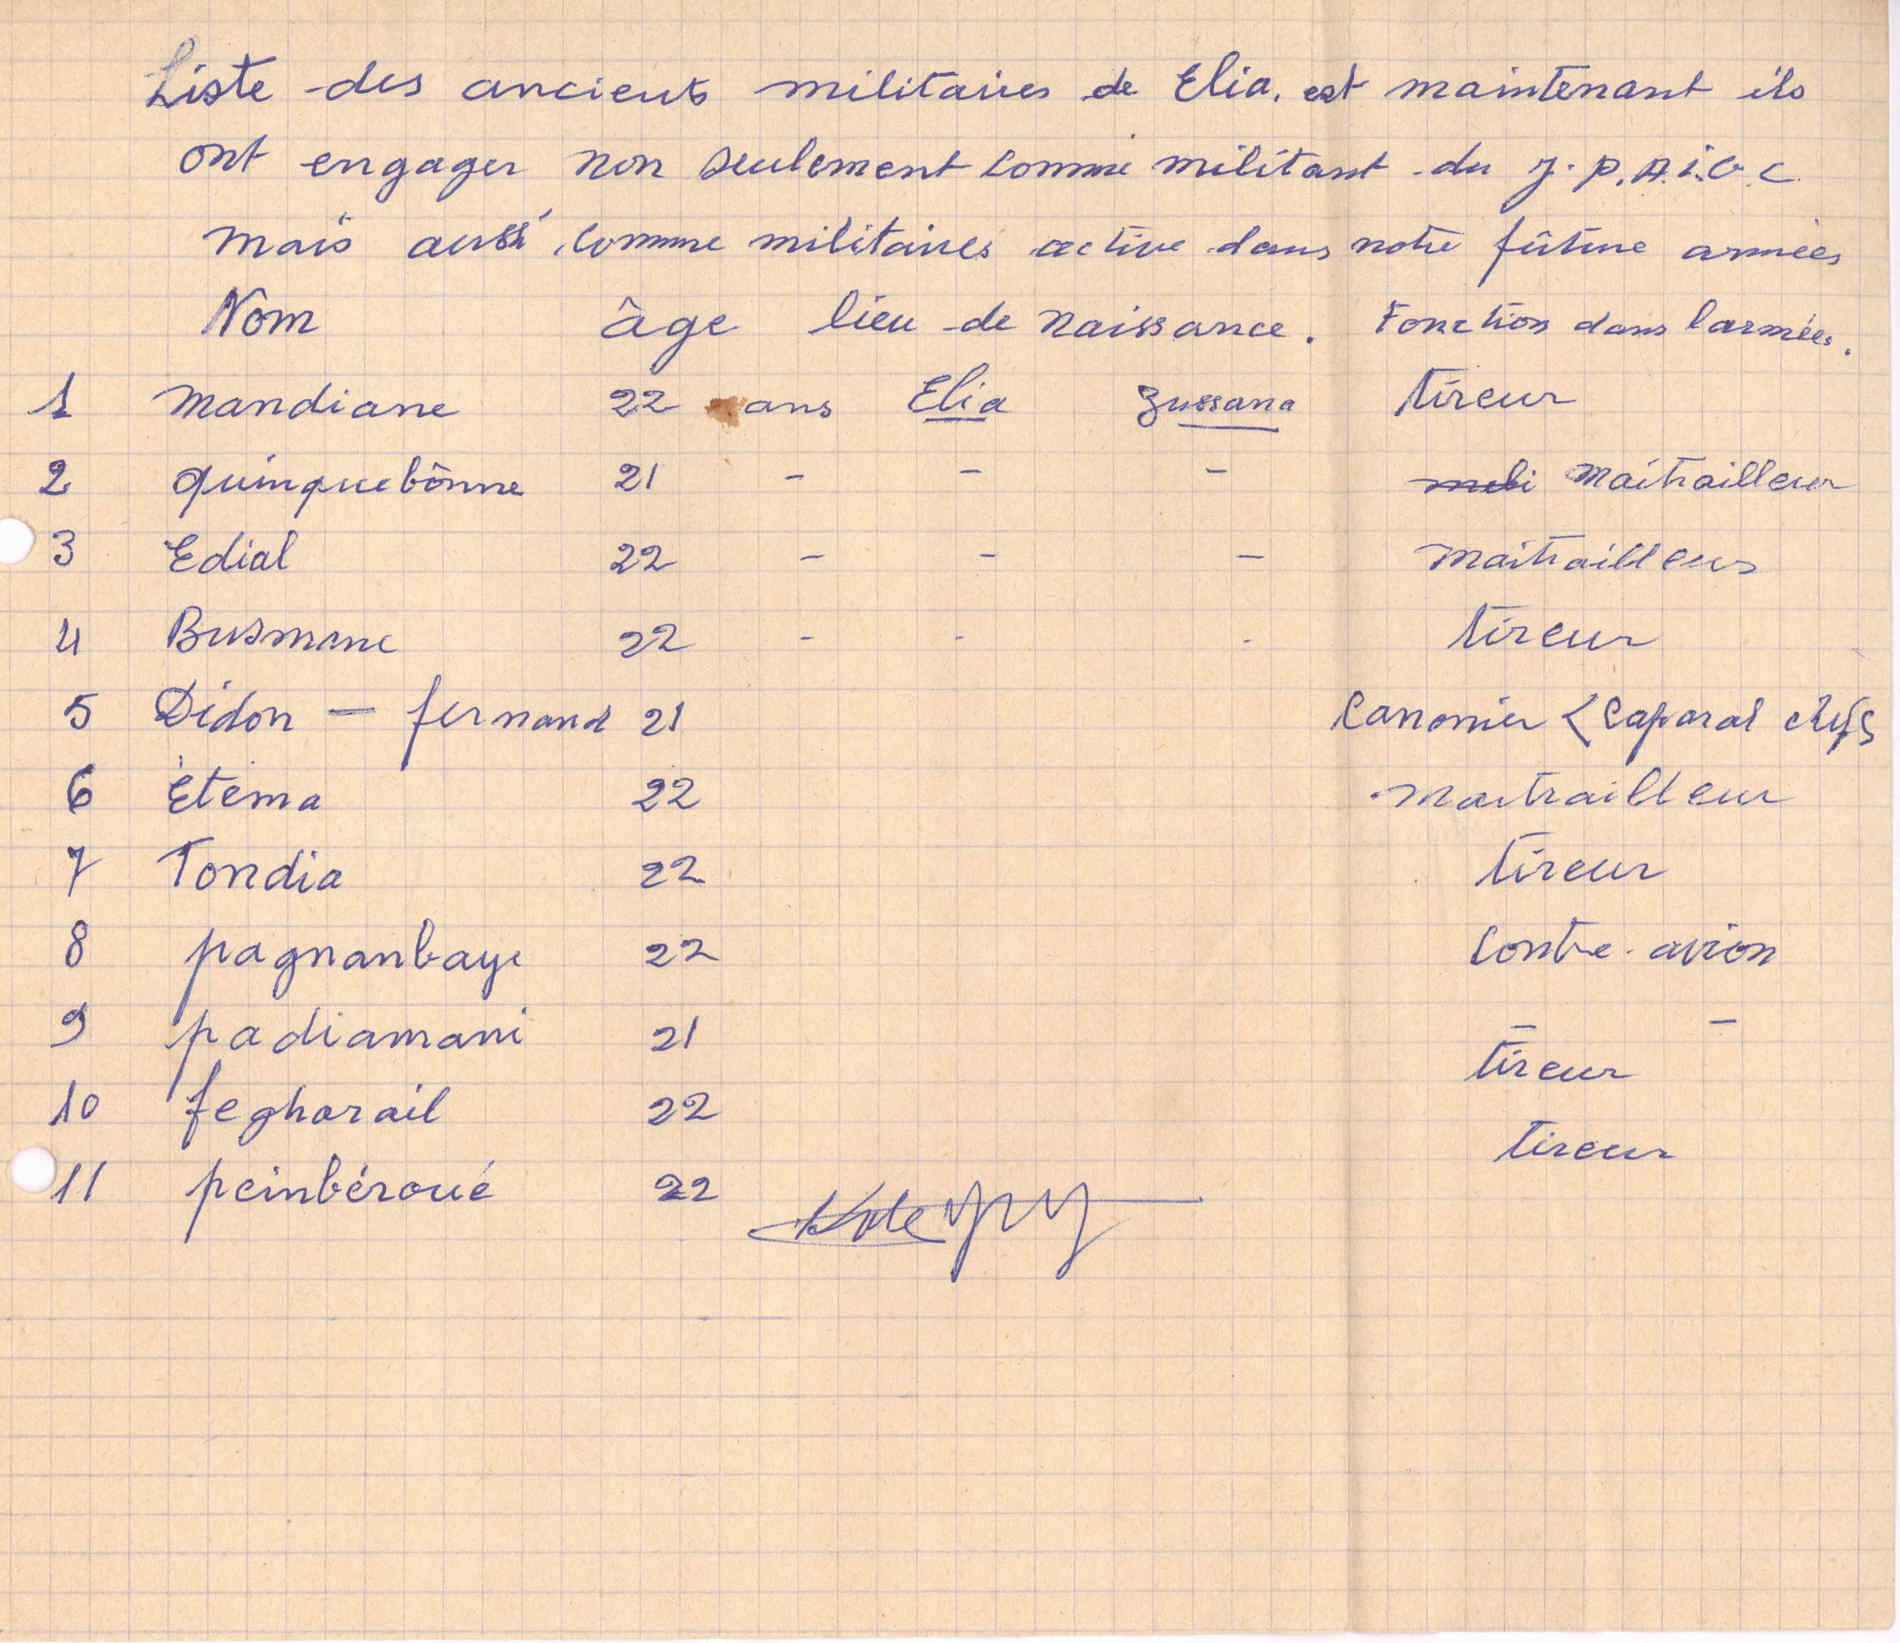 Liste des anciens militaires de Elia. est maintenant ils
ont engager non seulement comme militant du J.P.A.i.G.C.
mais aussi, comme militaires active dans notre fûture armées
Nom âge lieu de naissance. Fonction dans larmées.
1 Mandiane 22 ans Elia Zussana tireur
2 quinquebônne 21 - - - Maitrailleur
3 Edial 22 - - - maitrailleurs
4 Busmane 22 - - - tireur
5 Didon — fernand 21 Canonier < Caparal chefs
6 Etéma 22 Maitrailleur
7 Tondia 22 tireur
8 pagnanbaye 22 Contre-avion
9 padiamani 21 - -
tireur
10 fegharail 22
tireur
11 peinbéroué 22